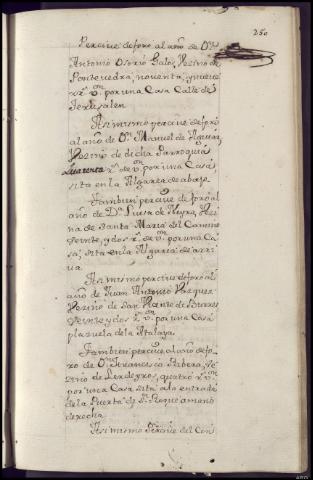 250
Percive de foro al año de Dn.
Antonio Osorio Galos, Vecino de
Pontevedra, noventa, y nueve
rs. von. por una Casa Calle de
Jerusalen
Asi mismo percive de foro
al año de Dn. Manuel de Aguiar,
Vecino de dicha Parroquia
quarenta rs. de von. por una Casa
sita en la Algarea de abajo
Tambien percive de foro al
año de Da. Luisa de Neyra, Veci
na de Santa Maria del Camino
veinte, y dos rs. de von. por una Ca
sa, sita en la Algaria de arri
va
Asi mismo percive de foro al
año de Juan Antonio Vazquez
Vecino de San Vicente de
veinte y dos rs. von. por una Casa
plazuela de la Atalaya
Tambien percive al año de fo
ro de Dn. Francisco Ribera, Ve
cino de quatro rs. von.
por una Casa sita a la entrada
de la Puerta de Sn. Roque a mano
derecha
Asi mismo Percive del Con